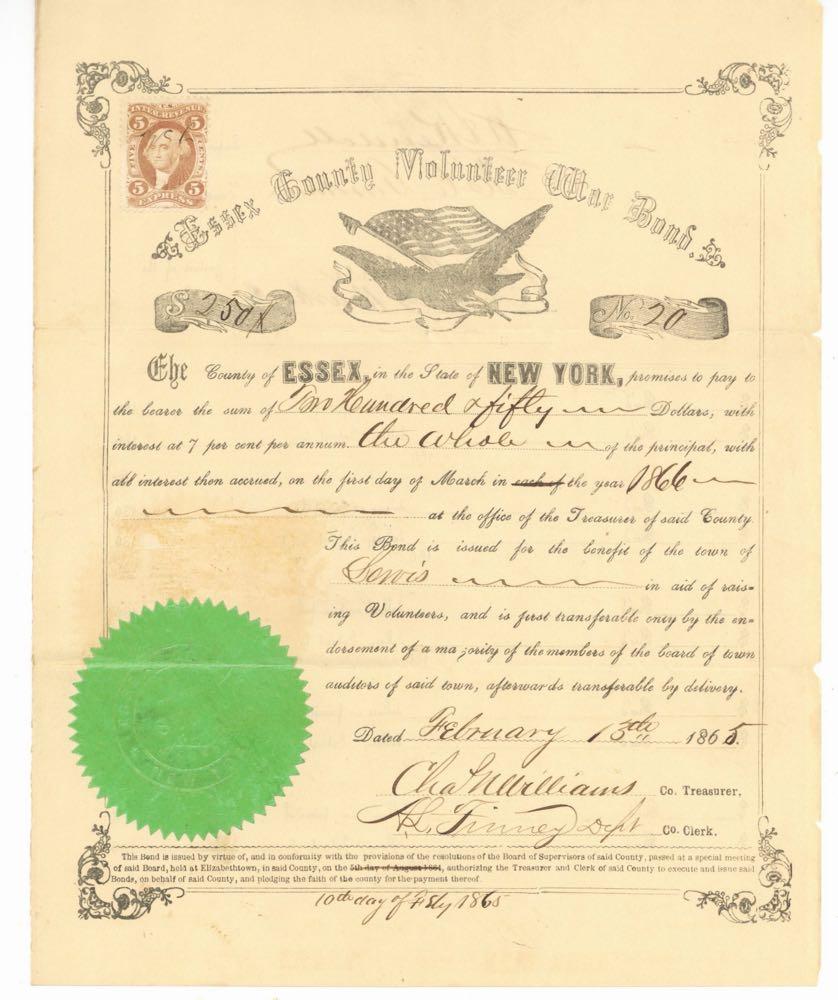 U.S. INTER. REVENUE
5 5
FIVE CENTS
5 5
EXPRESS
Essex County Volunteer War Bond.
$ 250
No. 20
The County of ESSEX, in the State of NEW YORK, promises to pay to
the bearer the sum of Two Hundred & fifty Dollars, with
interest at 7 per cent per annum. the whole of the principal, with
all interest then accrued, on the first day of March in each of the year 1866
at the office of the Treasurer of said County
This Bond is issued for the benefit of the town of
Lewis in aid of rais-
ing Volunteers, and is first transferable only by the en-
dorsement of a majority of the members of the board of town
auditors of said town, afterwards transferable by delivery.
Dated February 15th 1865.
Cha N Williams Co. Treasurer.
Finney Dept Co. Clerk.
This Bond is issued by virtue of, and in conformity with the provisions of the resolutions of the Board of Supervisors of said County, passed at a special meeting
of said Board, held at Elizabethtown, in said County, on the 5th day of August 1864, authorizing the Treasurer and Clerk of said County to execute and issue said
Bonds, on behalf of said County, and pledging the faith of the county for the payment thereof.
10th day of Feby 1865